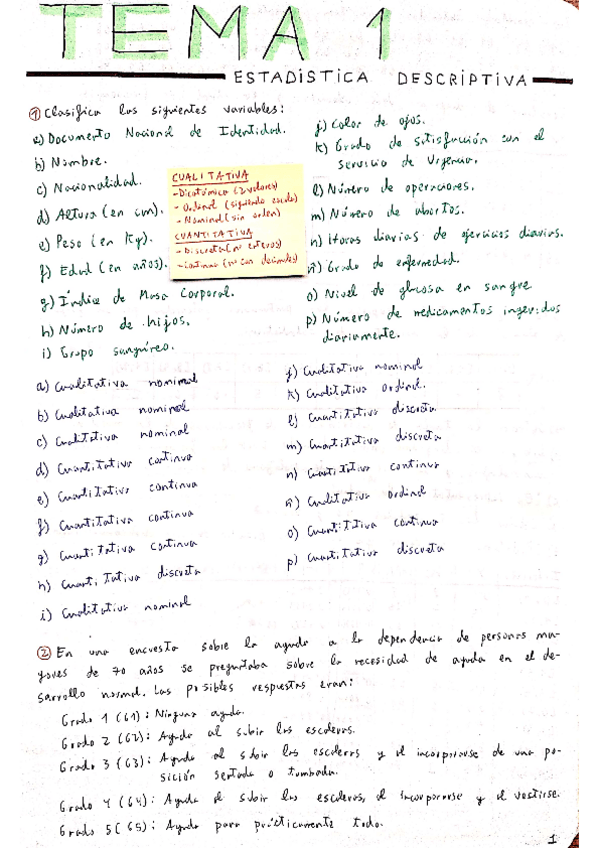 TEMA 1
ESTADÍSTICA DESCRIPTIVA
① Clasifica las siguientes variables:
a) Documento Nacional de Identidad.
b) Nombre.
c) Nacionalidad.
d) Altura (en cm).
e) Peso (en Kg).
f) Edad (en años).
g) Índice de Masa Corporal.
h) Número de hijos.
i) Grupo sanguíneo.
CUALITATIVA
- Dicotómica (2 valores)
- Ordinal (siguiendo escala)
- Nominal (sin orden)
CUANTITATIVA
- Discreta (nº enteros)
- Continua (nº con decimales)
j) Color de ojos.
k) Grado de satisfacción con el
servicio de Urgencia.
l) Número de operaciones.
m) Número de abortos.
n) Horas diarias de ejercicios diarias.
ñ) Grado de enfermedad.
o) Nivel de glucosa en sangre
p) Número de medicamentos ingeridos
diariamente.
a) Cualitativa nominal
b) Cualitativa nominal
c) Cualitativa nominal
d) Cuantitativa continua
e) Cuantitativa continua
f) Cuantitativa continua
g) Cuantitativa continua
h) Cuantitativa discreta
i) Cualitativa nominal
j) Cualitativa nominal
k) Cualitativa ordinal.
l) Cuantitativa discreta
m) Cuantitativa discreta
n) Cuantitativa continua
ñ) Cualitativa ordinal
o) Cuantitativa continua
p) Cuantitativa discreta
② En una encuesta sobre la ayuda a la dependencia de personas ma-
yores de 70 años se preguntaba sobre la necesidad de ayuda en el de-
sarrollo normal. Las posibles respuestas eran:
Grado 1 (G1): Ninguna ayuda.
Grado 2 (G2): Ayuda al subir las escaleras.
Grado 3 (G3): Ayuda al subir las escaleras y al incorporarse de una po-
sición sentada o tumbada.
Grado 4 (G4): Ayuda al subir las escaleras, al incorporarse y al vestirse.
Grado 5 (G5): Ayuda para prácticamente todo.
1